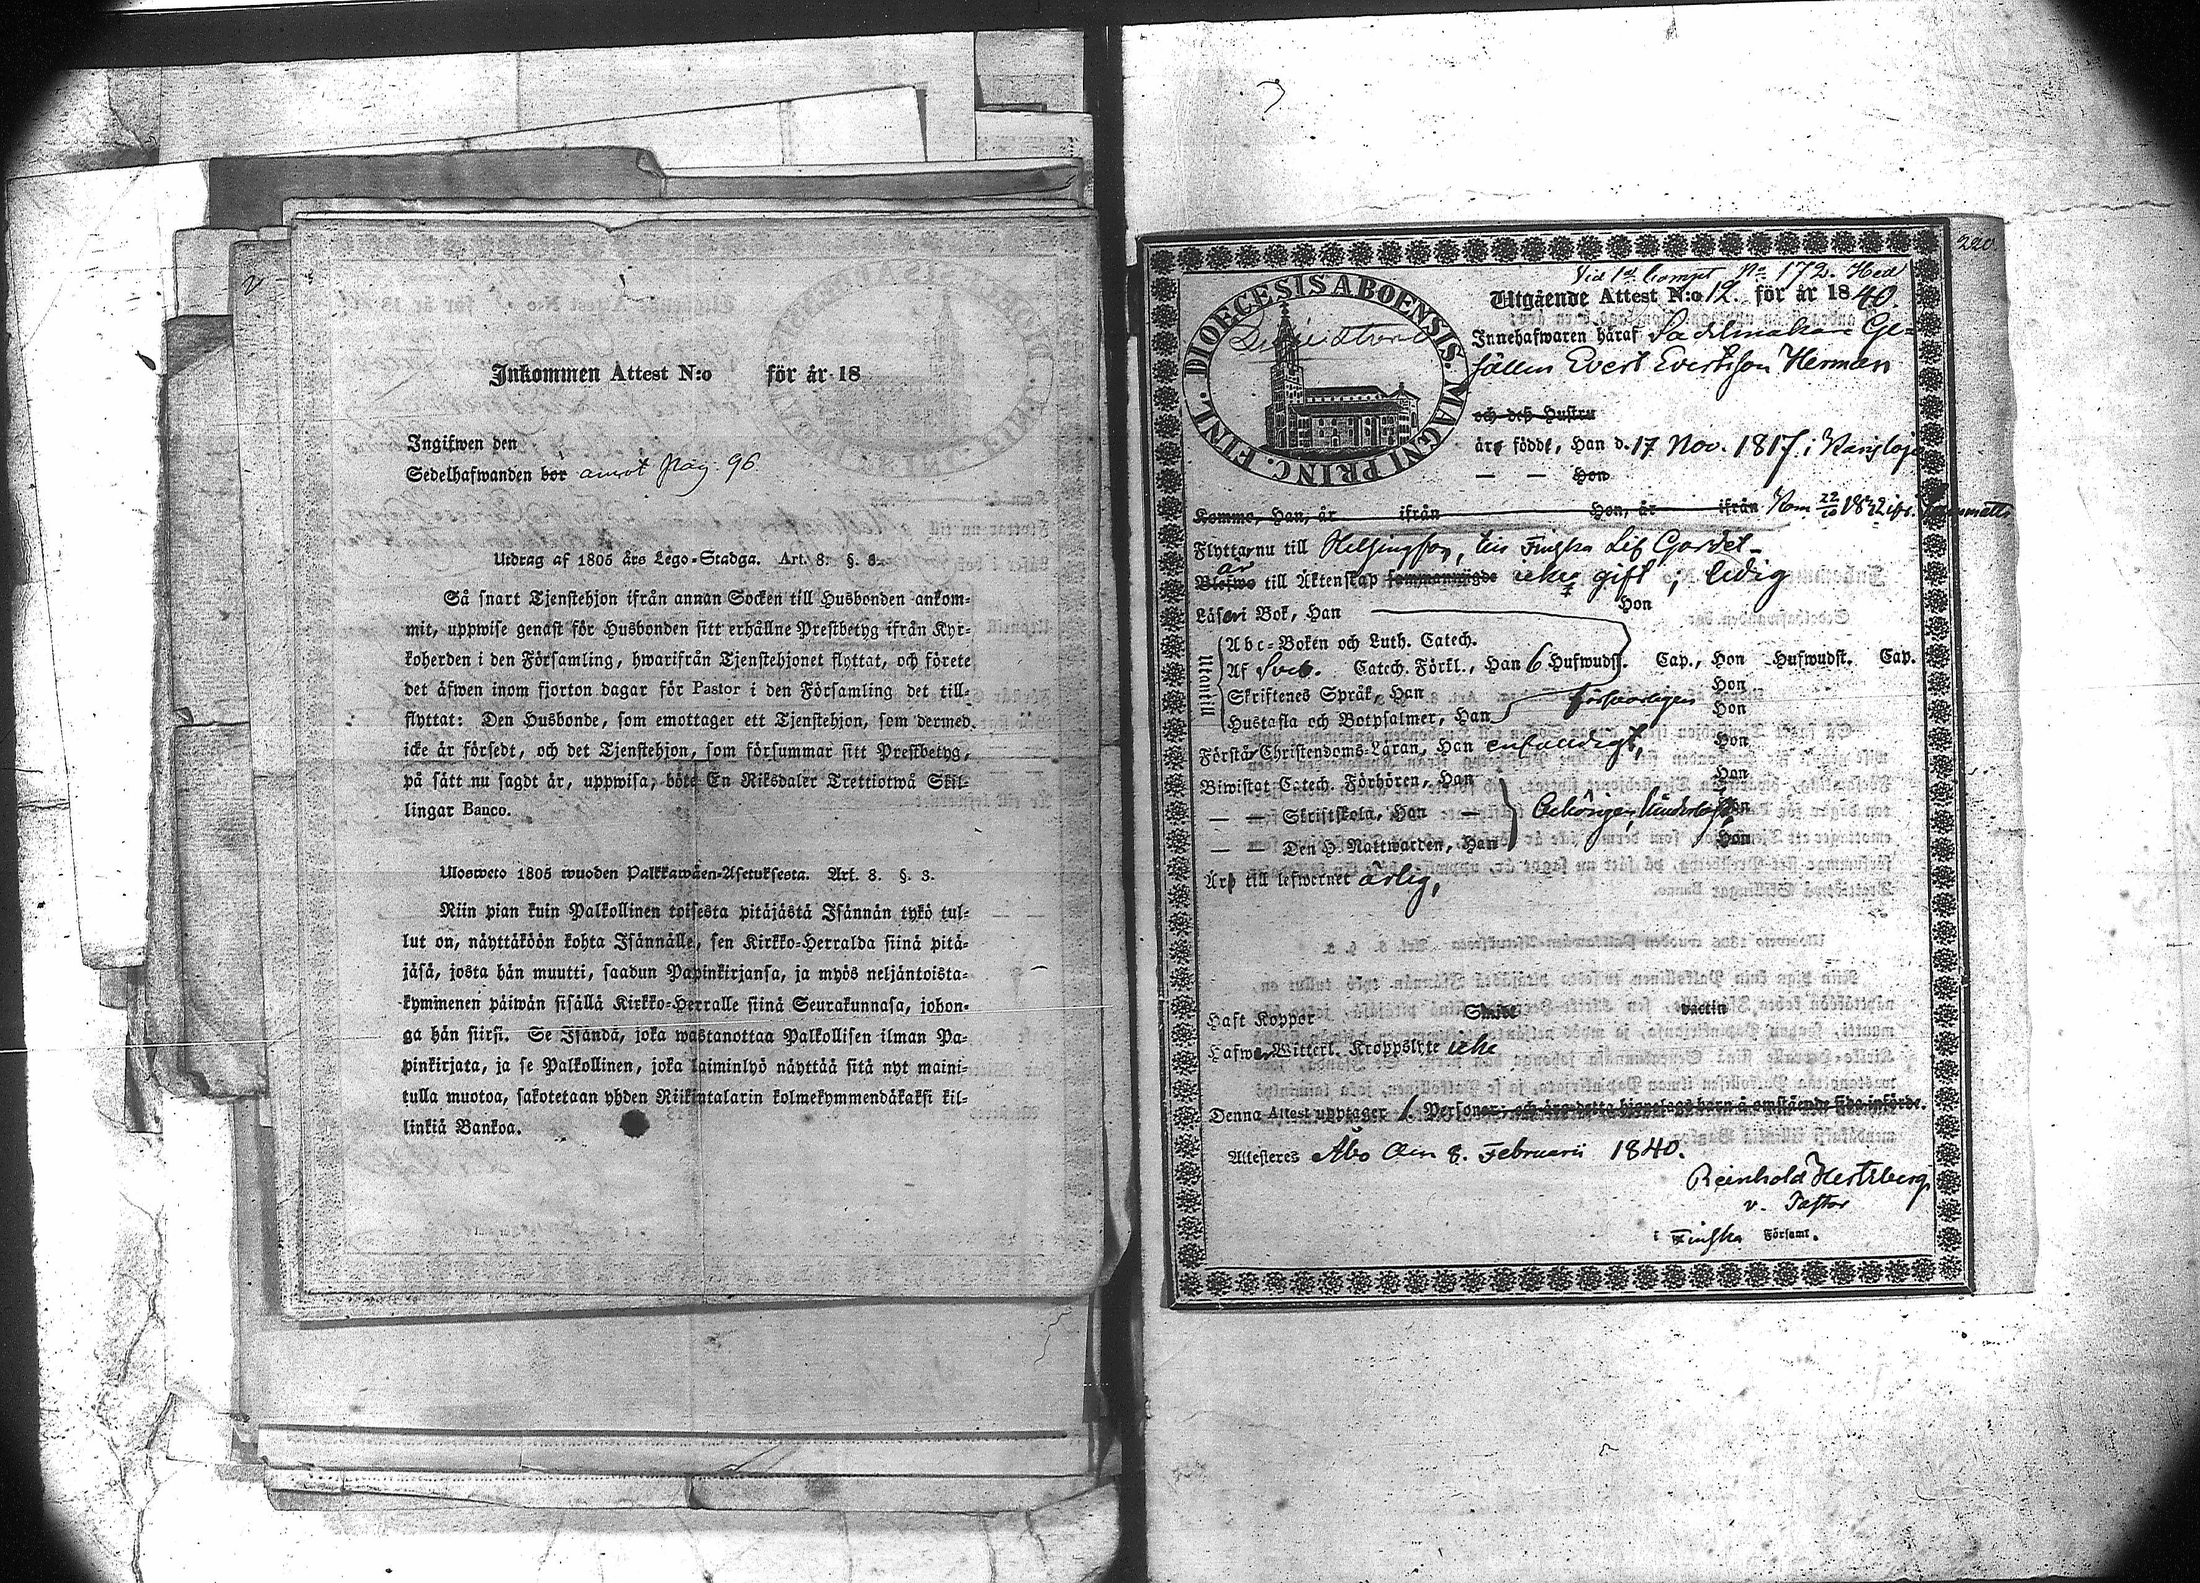 Inkommen Attest N:o för år 18
Ingifwen den
Sedelhafwanden bor antot pag. 96
Utdrag af 1805 års Lego-Stadga. Art. 8. §. 3.
Så snart Tjenstehjon ifrån annan Socken till Husbonden ankom-
mit, uppwise genast för Husbonden sitt erhållne Prestbetyg ifrån Kyr-
koherden i den Församling, hwarifrån Tjenstehjonet flyttat, och förete
det äfwen inom fjorton dagar för Pastor i den Församling det till-
flyttat: Den Husbonde, som emottager ett Tjenstehjon, som dermed
icke är försedt, och det Tjenstehjon, som försummar sitt Prestbetyg,
på sätt nu sagdt är, uppwisa, böte En Riksdaler Trettiotwå Skil-
lingar Banco.
Ulosweto 1805 wuoden Palkkawäen-Asetuksesta. Art. 8. §. 3.
Niin pian kuin Palkollinen toisesta pitäjästä Isännän tykö tul-
lut on, näyttäköön kohta Isännälle, sen Kirkko-Herralda siinä pitä-
jäsä, josta hän muutti, saadun Papinkirjansa, ja myös neljäntoista-
kymmenen päiwän sisällä Kirkko-Herralle siinä Seurakunnasa, johon-
ga hän siirsi. Se Isändä, joka wastanottaa Palkollisen ilman Pa-
pinkirjata, ja se Palkollinen, joka laiminlyö näyttää sitä nyt maini-
tulla muotoa, sakotetaan yhden Riikintalarin kolmekymmendäkaksi kil-
linkiä Bankoa.
220
Vid 1st Compt No 172. Hed
DIOECESIS ABOENSIS. MAGNI PRINC. FINL.
Utgående Attest N:o 12. för år 1840.
Innehafwaren häraf Sadelmakare Ge-
sällen Evert Evertsson Herman
och deß Hustru
äro födde, Han d. 17 Nov. 1817. i Karisloja
— — Hon
Kommo, Han, år ifrån Hon, år ifrån Kom 22/10 1832 ifr.
Flyttar nu till Helsingfors, till Finska Lif Gardet
är
Blefwo till Äktenskap sammanwigde icke gift; ledig
Läser i Bok, Han Hon
Utantill
Abc-Boken och Luth. Catech.
Af Sveb. Catech. Förkl., Han 6 Hufwudst. Cap., Hon Hufwudst. Cap.
Skriftenes Språk, Han Hon
Hustafla och Botpsalmer, Han Hon
Förstår Christendoms-Läran, Han enfaldigt, Hon
Biwistat Catech. Förhören, Han Hon
— — Skriftskola, Han — Hon
— — Den H. Nattwarden, Han Hon
Är till lefwernet ärlig,
Haft Koppor Skride Vaccin
Hafwer Witterl. Kroppslyte icke
Denna Attest upptager 1. Personer, och äro detta hjonelags barn å omstående sida införde.
Attesteres Åbo den 8. Februarii 1840.
Reinhold Hertzberg
v. Pastor
i Finska Församl.